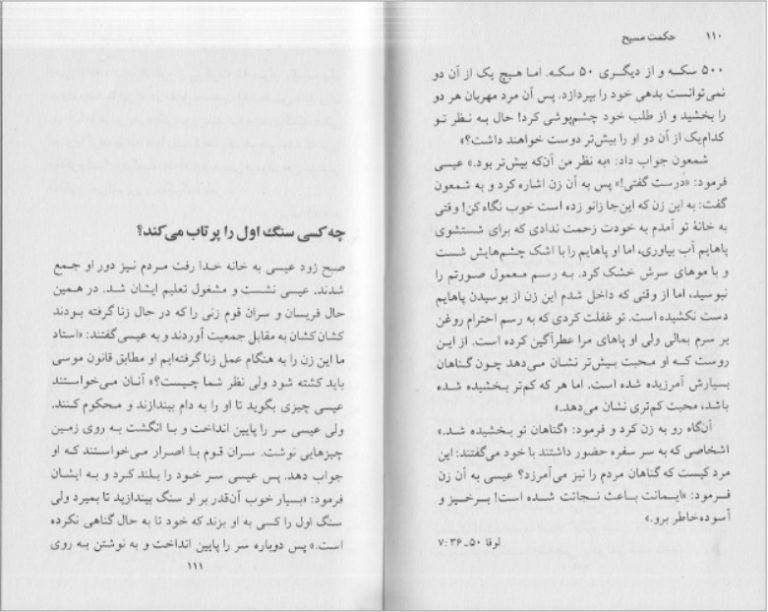 ۱۱۰ حکمت مسیح
۵۰۰ سکـه و از دیگـری ۵۰ سکـه. امـا هـیچ یک از آن دو
نمی‌توانست بدهی خود را بپردازد. پس آن مرد مهربان هر دو
را بخشید و از طلب خود چشم‌پوشی کرد! حال بـه نظـر تـو
کدام‌یک از آن دو او را بیش‌تر دوست خواهند داشت؟»
شمعون جواب داد: «به نظر من آن‌که بیش‌تر بود.» عیسی
فرمود: «درست گفتی!» پس به آن زن اشاره کرد و به شمعون
گفت: به این زن که این‌جا زانو زده است خوب نگاه کن! وقتی
به خانهٔ تو آمدم به خودت زحمت ندادی که برای شستشوی
پاهایم آب بیاوری، اما او پاهایم را با اشک چشم‌هایش شست
و با موهای سرش خشک کرد. بـه رسـم معمول صورتم را
نبوسید، اما از وقتی که داخل شدم این زن از بوسیدن پاهایم
دست نکشیده است. تو غفلت کردی که به رسم احترام روغن
بر سرم بمالی ولی او پاهای مرا عطرآگین کرده است. از ایـن
روست کـه او محبت بیش‌تر نشان مـی‌دهد چـون گـناهان
بسیارش آمرزیده شده است. اما هر که کم‌تر بـخشیده شـده
باشد، محبت کم‌تری نشان می‌دهد.»
آن‌گاه رو به زن کرد و فرمود: «گناهان تو بخشیده شـد.»
اشخاصی که به سر سفره حضور داشتند با خود می‌گفتند: این
مرد کیست که گناهان مردم را نیز می‌آمرزد؟ عیسی به آن زن
فـرمود: «ایـمانت بـاعث نـجاتت شـده است! بـرخـیز و
آسوده‌خاطر برو.»
لوقا ۵۰ـ۳۶ :۷
چه کسی سنگ اول را پرتاب می‌کند؟
صبح زود عیسی به خانه خـدا رفت مـردم نـیز دور او جـمع
شدند. عیسی نشست و مشغول تعلیم ایشان شـد. در هـمین
حال فریسان و سران قوم زنی را که در حال زنا گرفته بـودند
کشان‌کشان به مقابل جمعیت آوردند و به عیسی گفتند: «استاد
ما این زن را به هنگام عمل زنا گرفته‌ایم او مطابق قانون موسی
باید کشته شود ولی نظر شما چیست؟» آنـان مـی‌خواسـتند
عیسی چیزی بگوید تا او را به دام بیندازند و محکوم کـنند.
ولی عیسی سر را پایین انداخت و بـا انگشت بـه روی زمـین
چیزهایی نوشت. سـران قـوم بـا اصـرار مـی‌خواستند کـه او
جواب دهد. پس عیسی سر خـود را بـلند کـرد و بـه ایشان
فرمود: «بسیار خوب آن‌قدر بر او سنگ بیندازید تا بمیرد ولی
سنگ اول را کسی به او بزند که خود تا به حال گناهی نکرده
است.» پس دوباره سر را پایین انداخت و به نوشتن به روی
۱۱۱